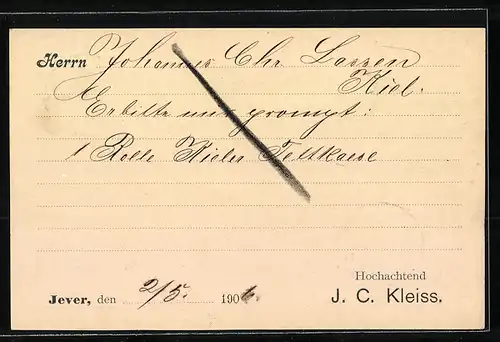 Herrn Johannes Chr. Lassen
Kiel.
Erbitte nur prompt:
1 Rolle Kieler Fettkaese
Hochachtend
Jever, den 2/5. 1906. J. C. Kleiss.